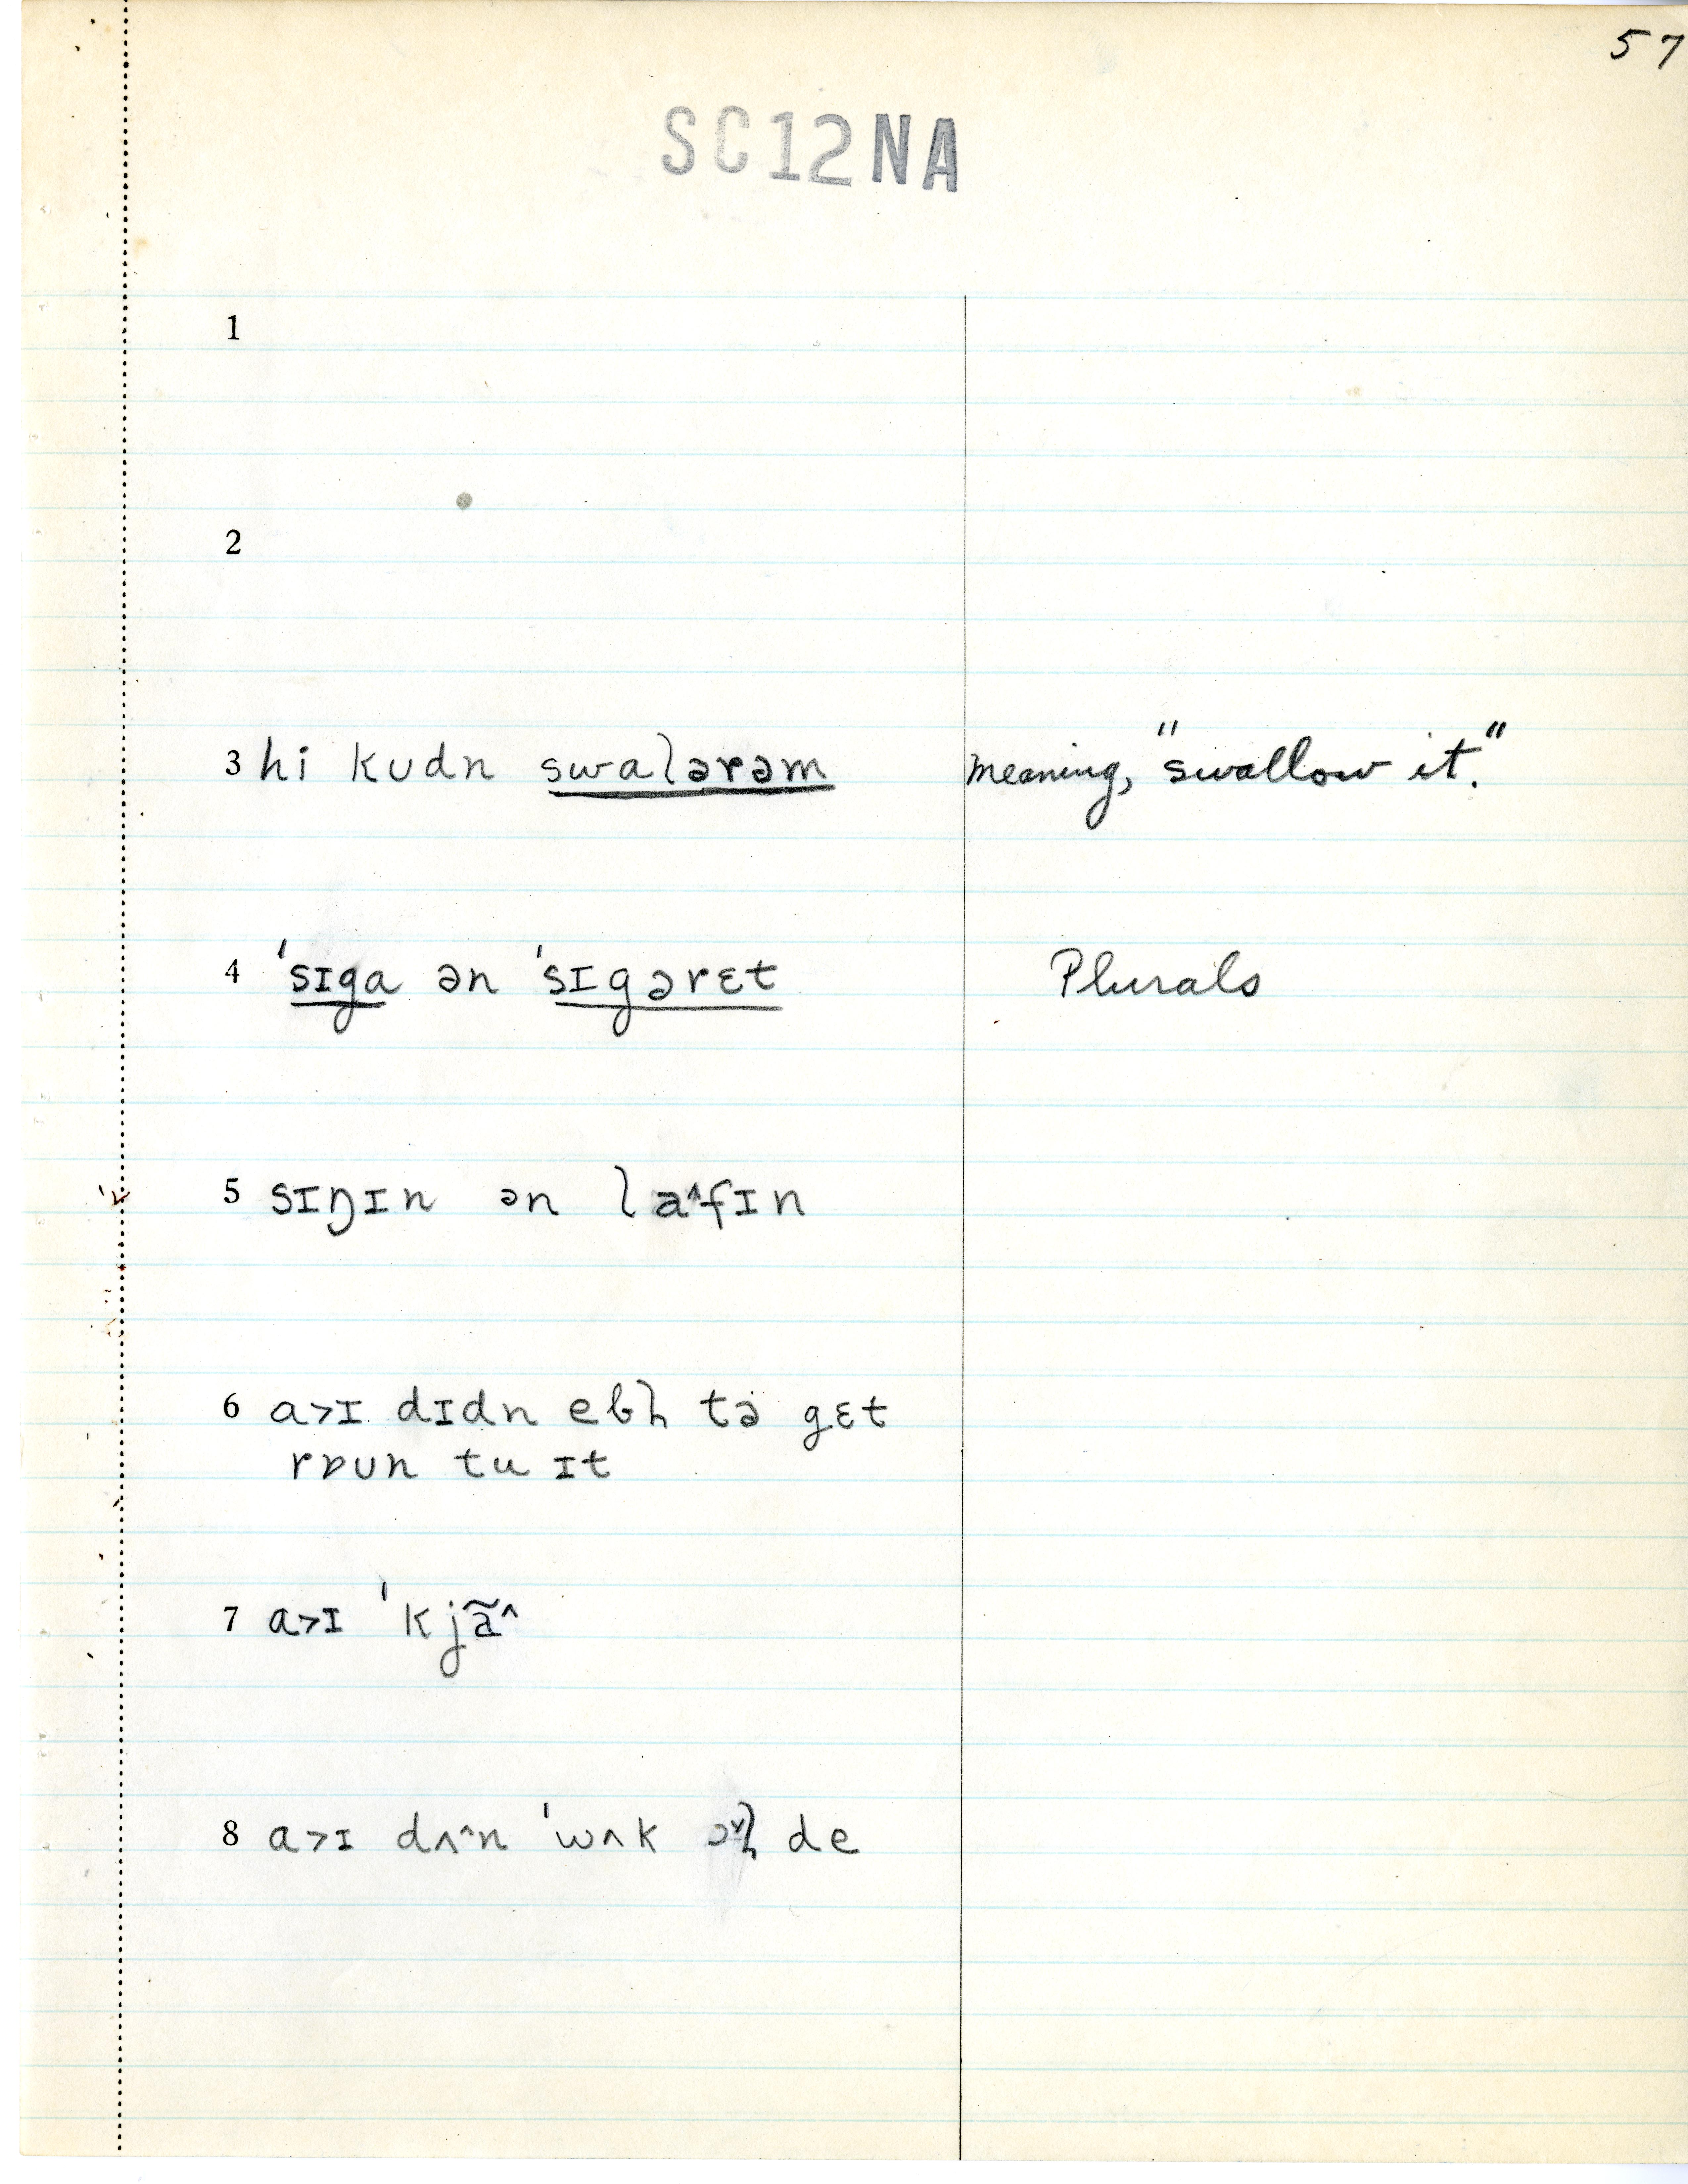 57
SC12NA
1
2
3 hi kʊdn swalərəm meaning, "swallow it."
4 ˈsɪga ən ˈsɪgərɛt Plurals
5 sɪŋɪn ən la^fɪn
6 a>ɪ dɪdn eɓl̩ tə gɛt
rɒʊn tu ɪt
7 a>ɪ ˈkjã^
8 a>ɪ dʌ^n ˈwʌk de